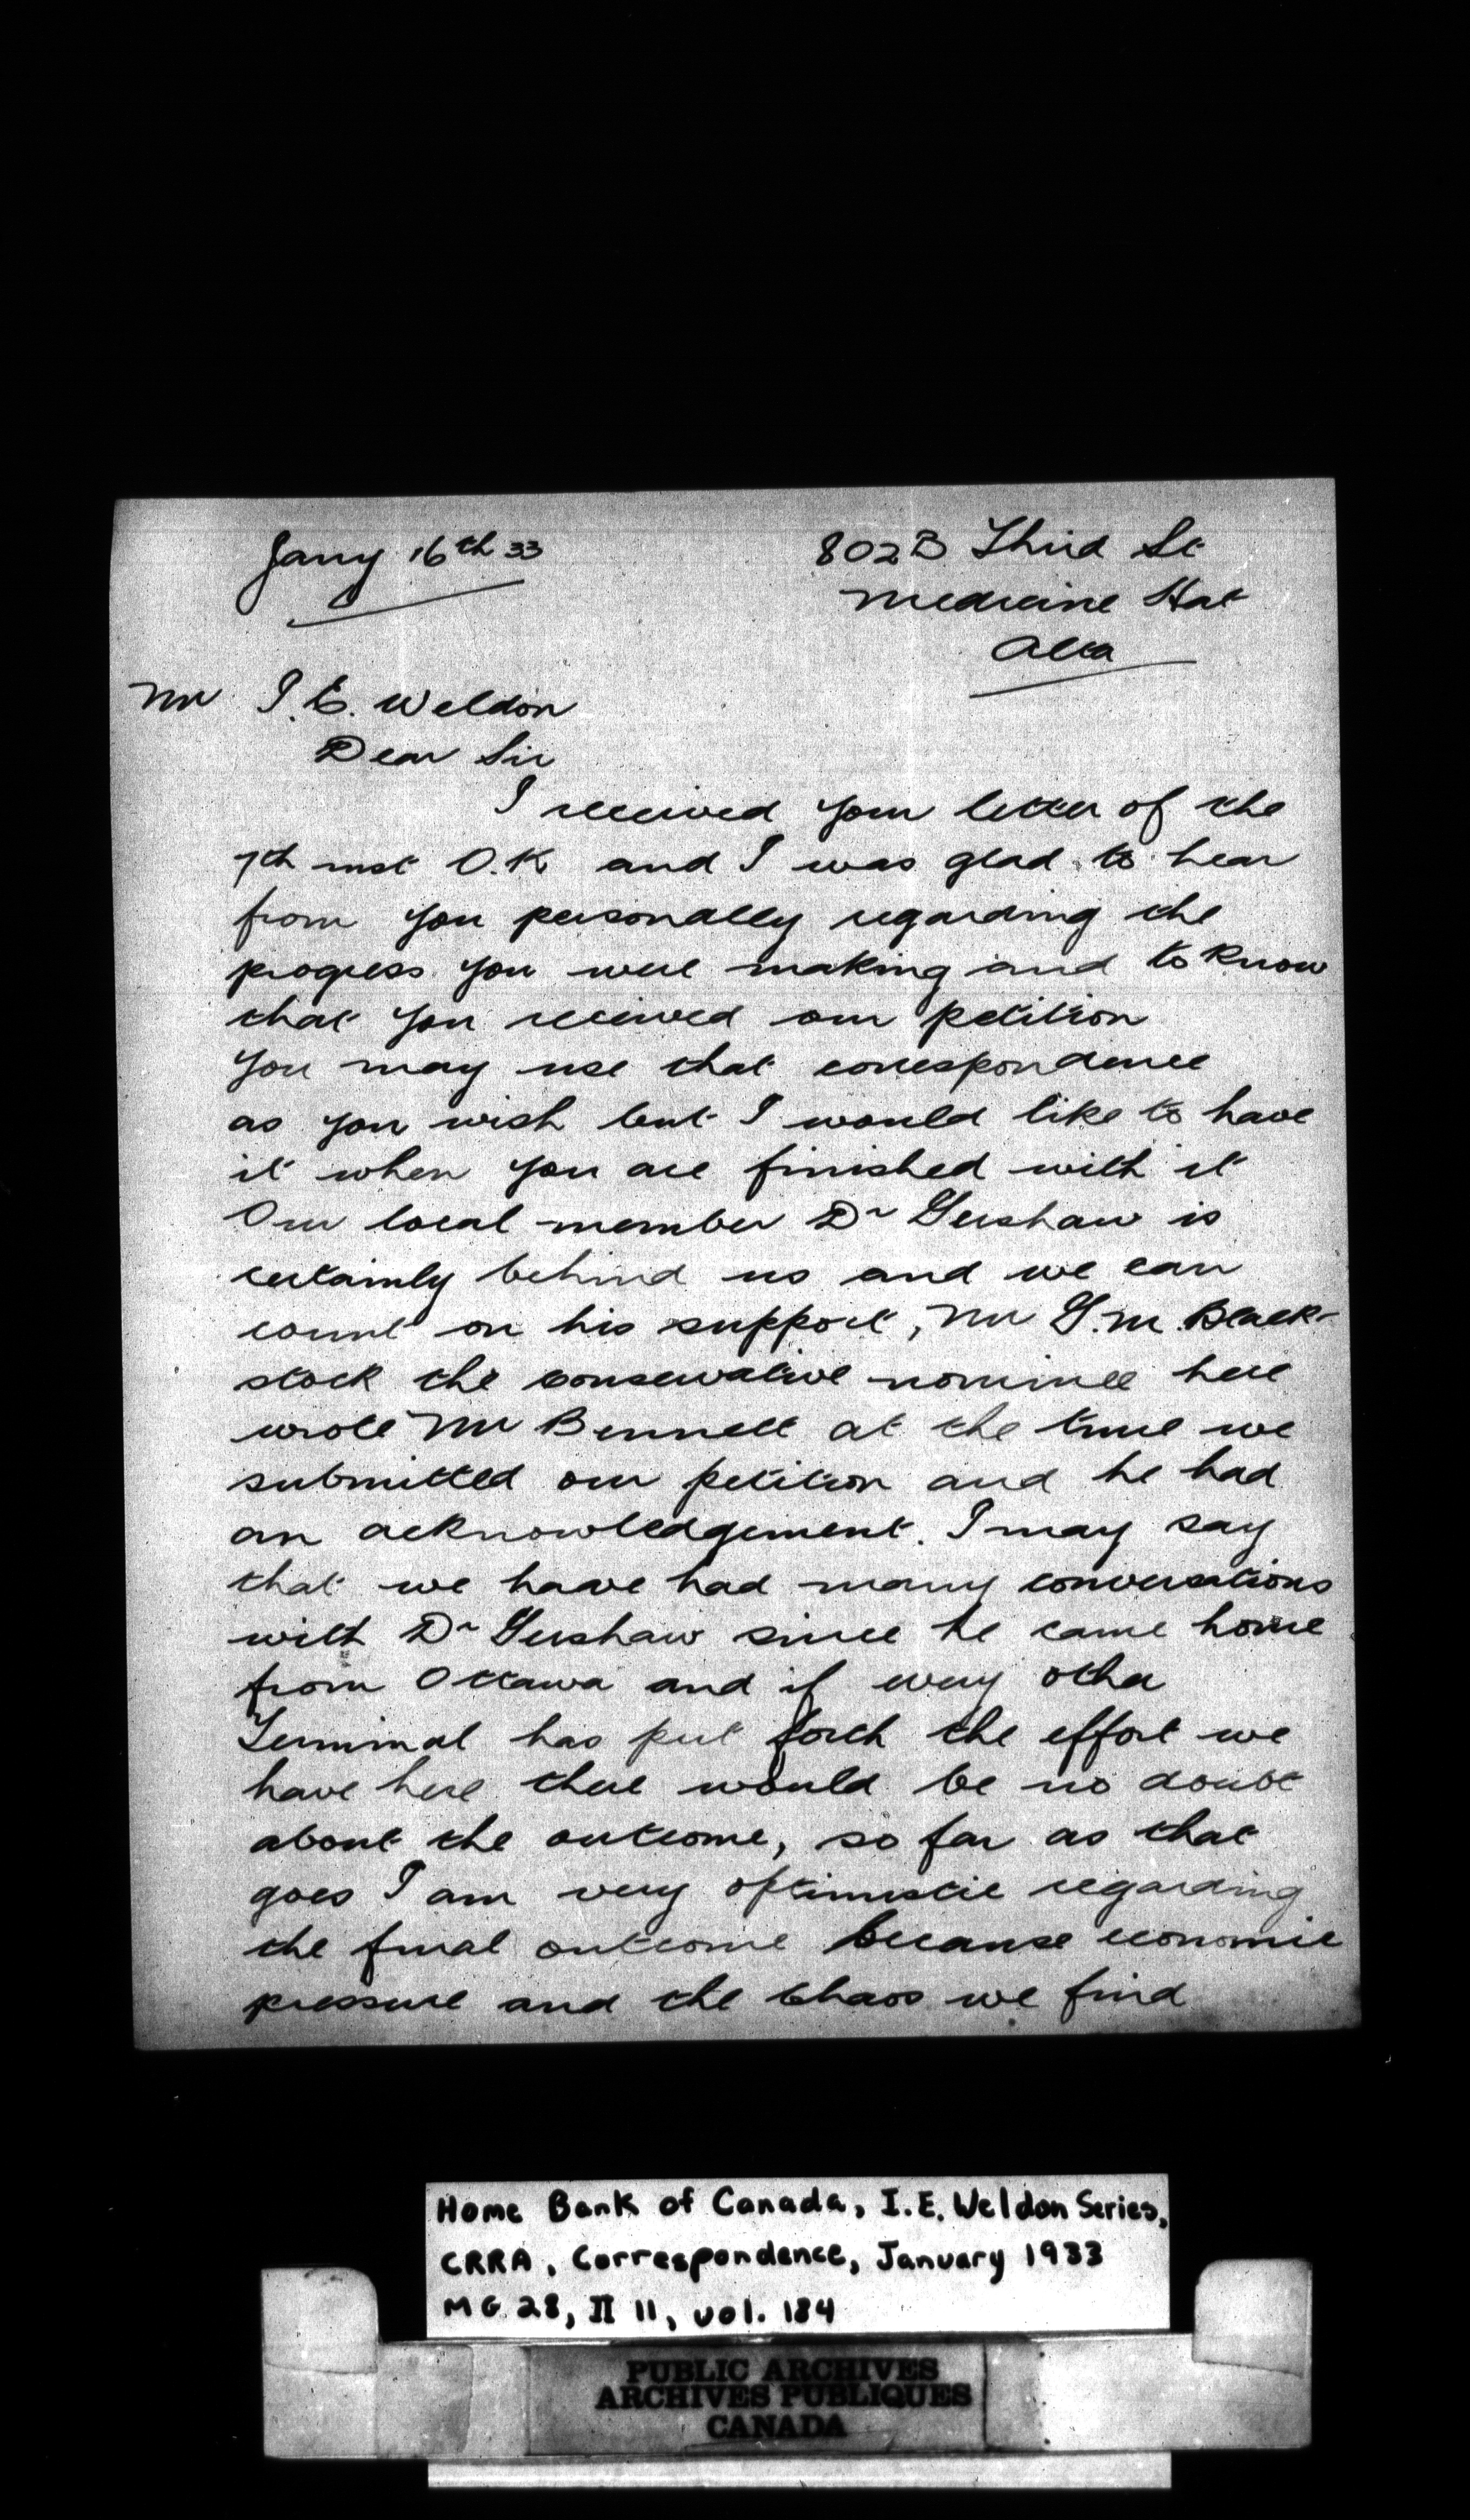 Jany 16th 33
802B Third St
Medicine Hat
Alta
Mr I.E. Weldon
Dear Sir
I received your letter of the
7th inst O.K and I was glad to hear
from you personally regarding the
progress you were making and to know
that you received our petition
you may use that correspondence
as you wish but I would like to have
it when you are finished with it
Our local member Dr Gershaw is
certainly behind us and we can
count on his support, Mr G.M. Black-
stock the conservative nominee here
wrote Mr Bennett at the time we
submitted our petition and he had
an acknowledgement. I may say
that we have had many conversations
with Dr Gershaw since he came home
from Ottawa and if every other
Terminal has put forth the effort we
have here there would be no doubt
about the outcome, so far as that
goes I am very optimistic regarding
the final outcome because economic
pressure and the chaos we find
Home Bank of Canada, I.E. Weldon Series,
CRRA, Correspondence, January 1933
MG 28, II 11, vol. 184
PUBLIC ARCHIVES
ARCHIVES PUBLIQUES
CANADA